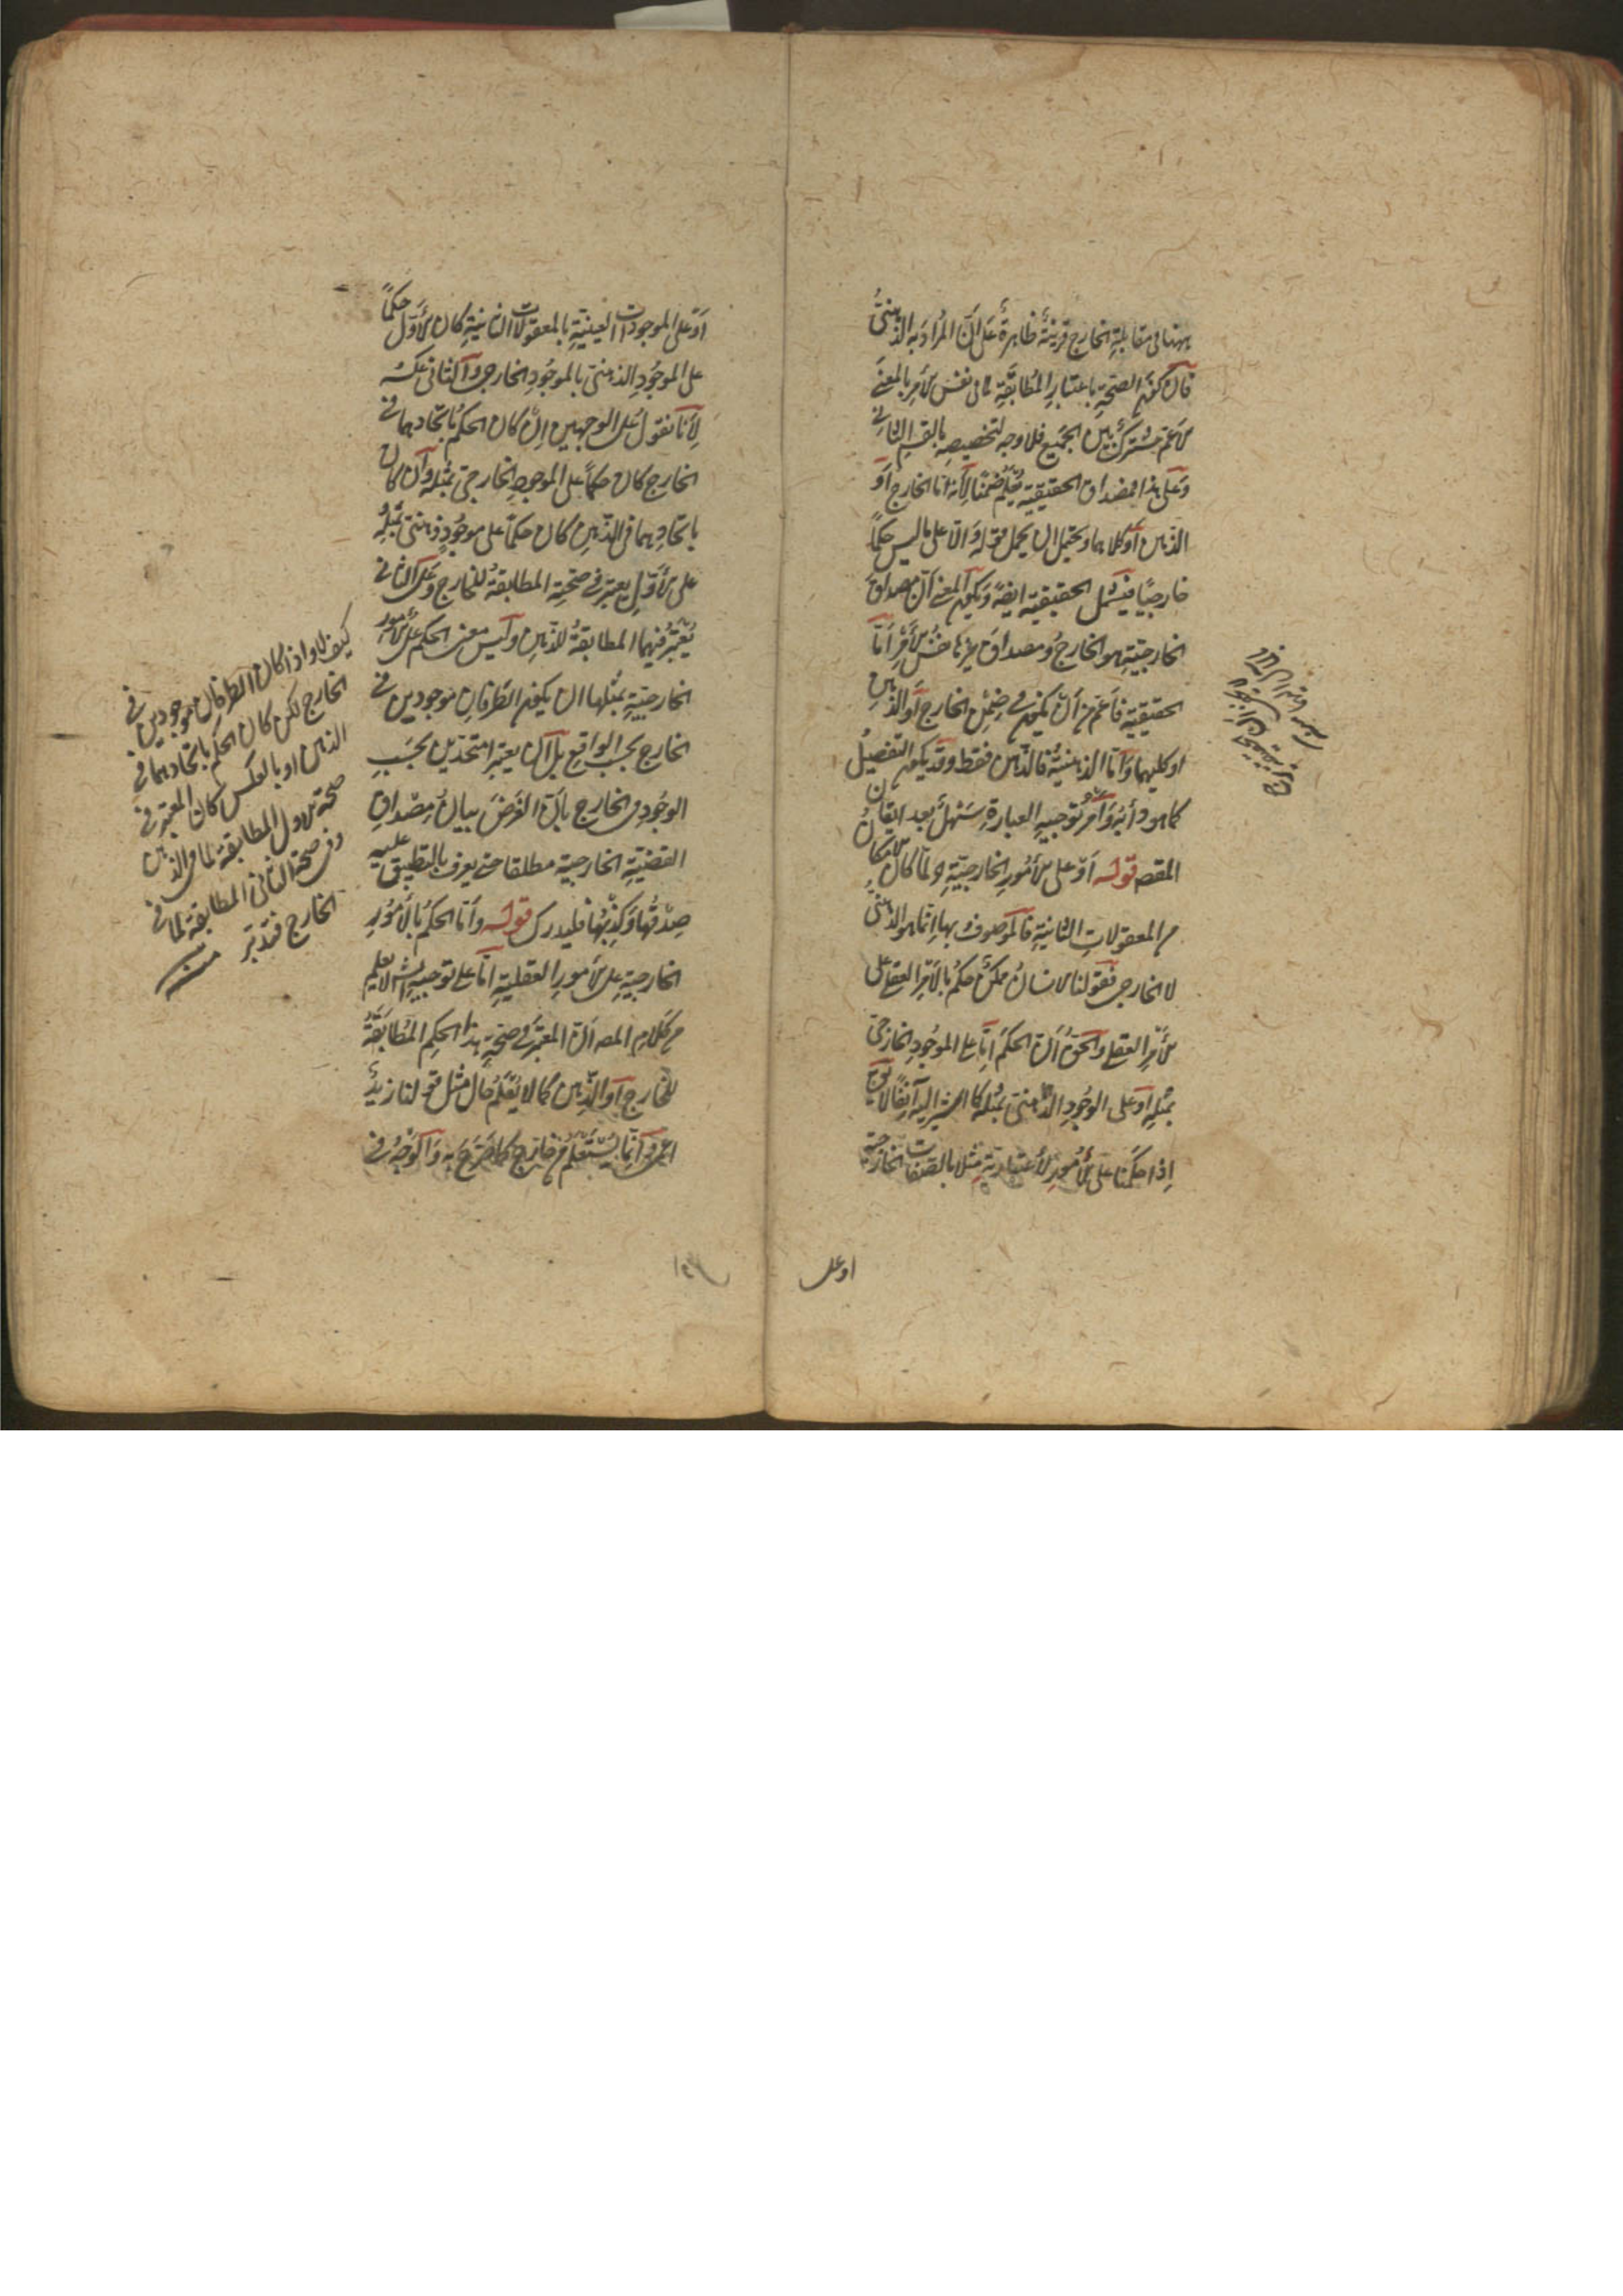 ههنا فى مقابلة الخارج قرينة ظاهرة على ان المراد به الذهنى
فان كون الصحة باعتبار المطابقة لما فى نفس الامر بالمعنى
الاعم مشترك بين الجميع فلا وجه لتخصيصه بالقسم الثانى
وعلى هذا فمصداق الحقيقية يعلم ضمنا لانه اما الخارج او
الذهن او كلاهما ويحتمل ان يحمل قوله والا على ما ليس حكما
خارجيا فيشمل الحقيقية ايضا ويكون المعنى ان مصداق
الخارجية هو الخارج ومصداق غيرها نفس الامر اما
الحقيقية فاعم من ان يكون فى ضمن الخارج او الذهن
او كليهما واما الذهنية فالذهن فقط وقد يكون التفصيل
كما هو دأبه وامر توجيه العبارة سهل بعد اتقان
المقصد قوله او على الامور الخارجية ولما كان الامكان
من المعقولات الثانية فالموصوف بها انما هو الذهنى
لا الخارجى فقولنا الانسان ممكن حكم بالامر العقلى على
الامر العقلى والحق ان الحكم اما على الموجود الخارجى
بمثله او على الوجود الذهنى بمثله كما اشير اليه آنفا لا يق
اذا حكمنا على الامور الاعتبارية مثلا بالصفات الخارجية
او على
او على الموجودات العينية بالمعقولات الثانية كان الاول حكما
على الموجود الذهنى بالموجود الخارجى والثانى عكسه
لانا نقول على الوجهين ان كان الحكم باتحادهما فى
الخارج كان حكما على الموجود الخارجى بمثله وان كان
باتحادهما فى الذهن كان حكما على موجود ذهنى بمثله
على الاول يعتبر فى صحته المطابقة للخارج وعلى الثانى
يعتبر فيهما المطابقة للذهن وليس معنى الحكم على الامور
الخارجية بمثلها ان يكون الطرفان موجودين فى
الخارج بحسب الواقع بل ان يعتبرا متحدين بحسب
الوجود فى الخارج بان الغرض بيان مصداق
القضية الخارجية مطلقا حتى يعرف بالتطبيق عليه
صدقها وكذبها فليدرك قوله واما الحكم بالامور
الخارجية على الامور العقلية اما على توجيه الش لا يعلم
من كلام المص ان المعتبر فى صحة هذا الحكم المطابقة
للخارج او الذهن كما لا يعلم حال مثل قولنا زيد
اعمى وانما يستعلم من خارج كما صرح به والوجه فى
كيف لا واذا كان الطرفان موجودين فى
الخارج لكن كان الحكم باتحادهما فى
الذهن او بالعكس كان المعتبر فى
صحة الاول المطابقة لما فى الذهن
وفى صحة الثانى المطابقة لما فى
الخارج فتدبر منه